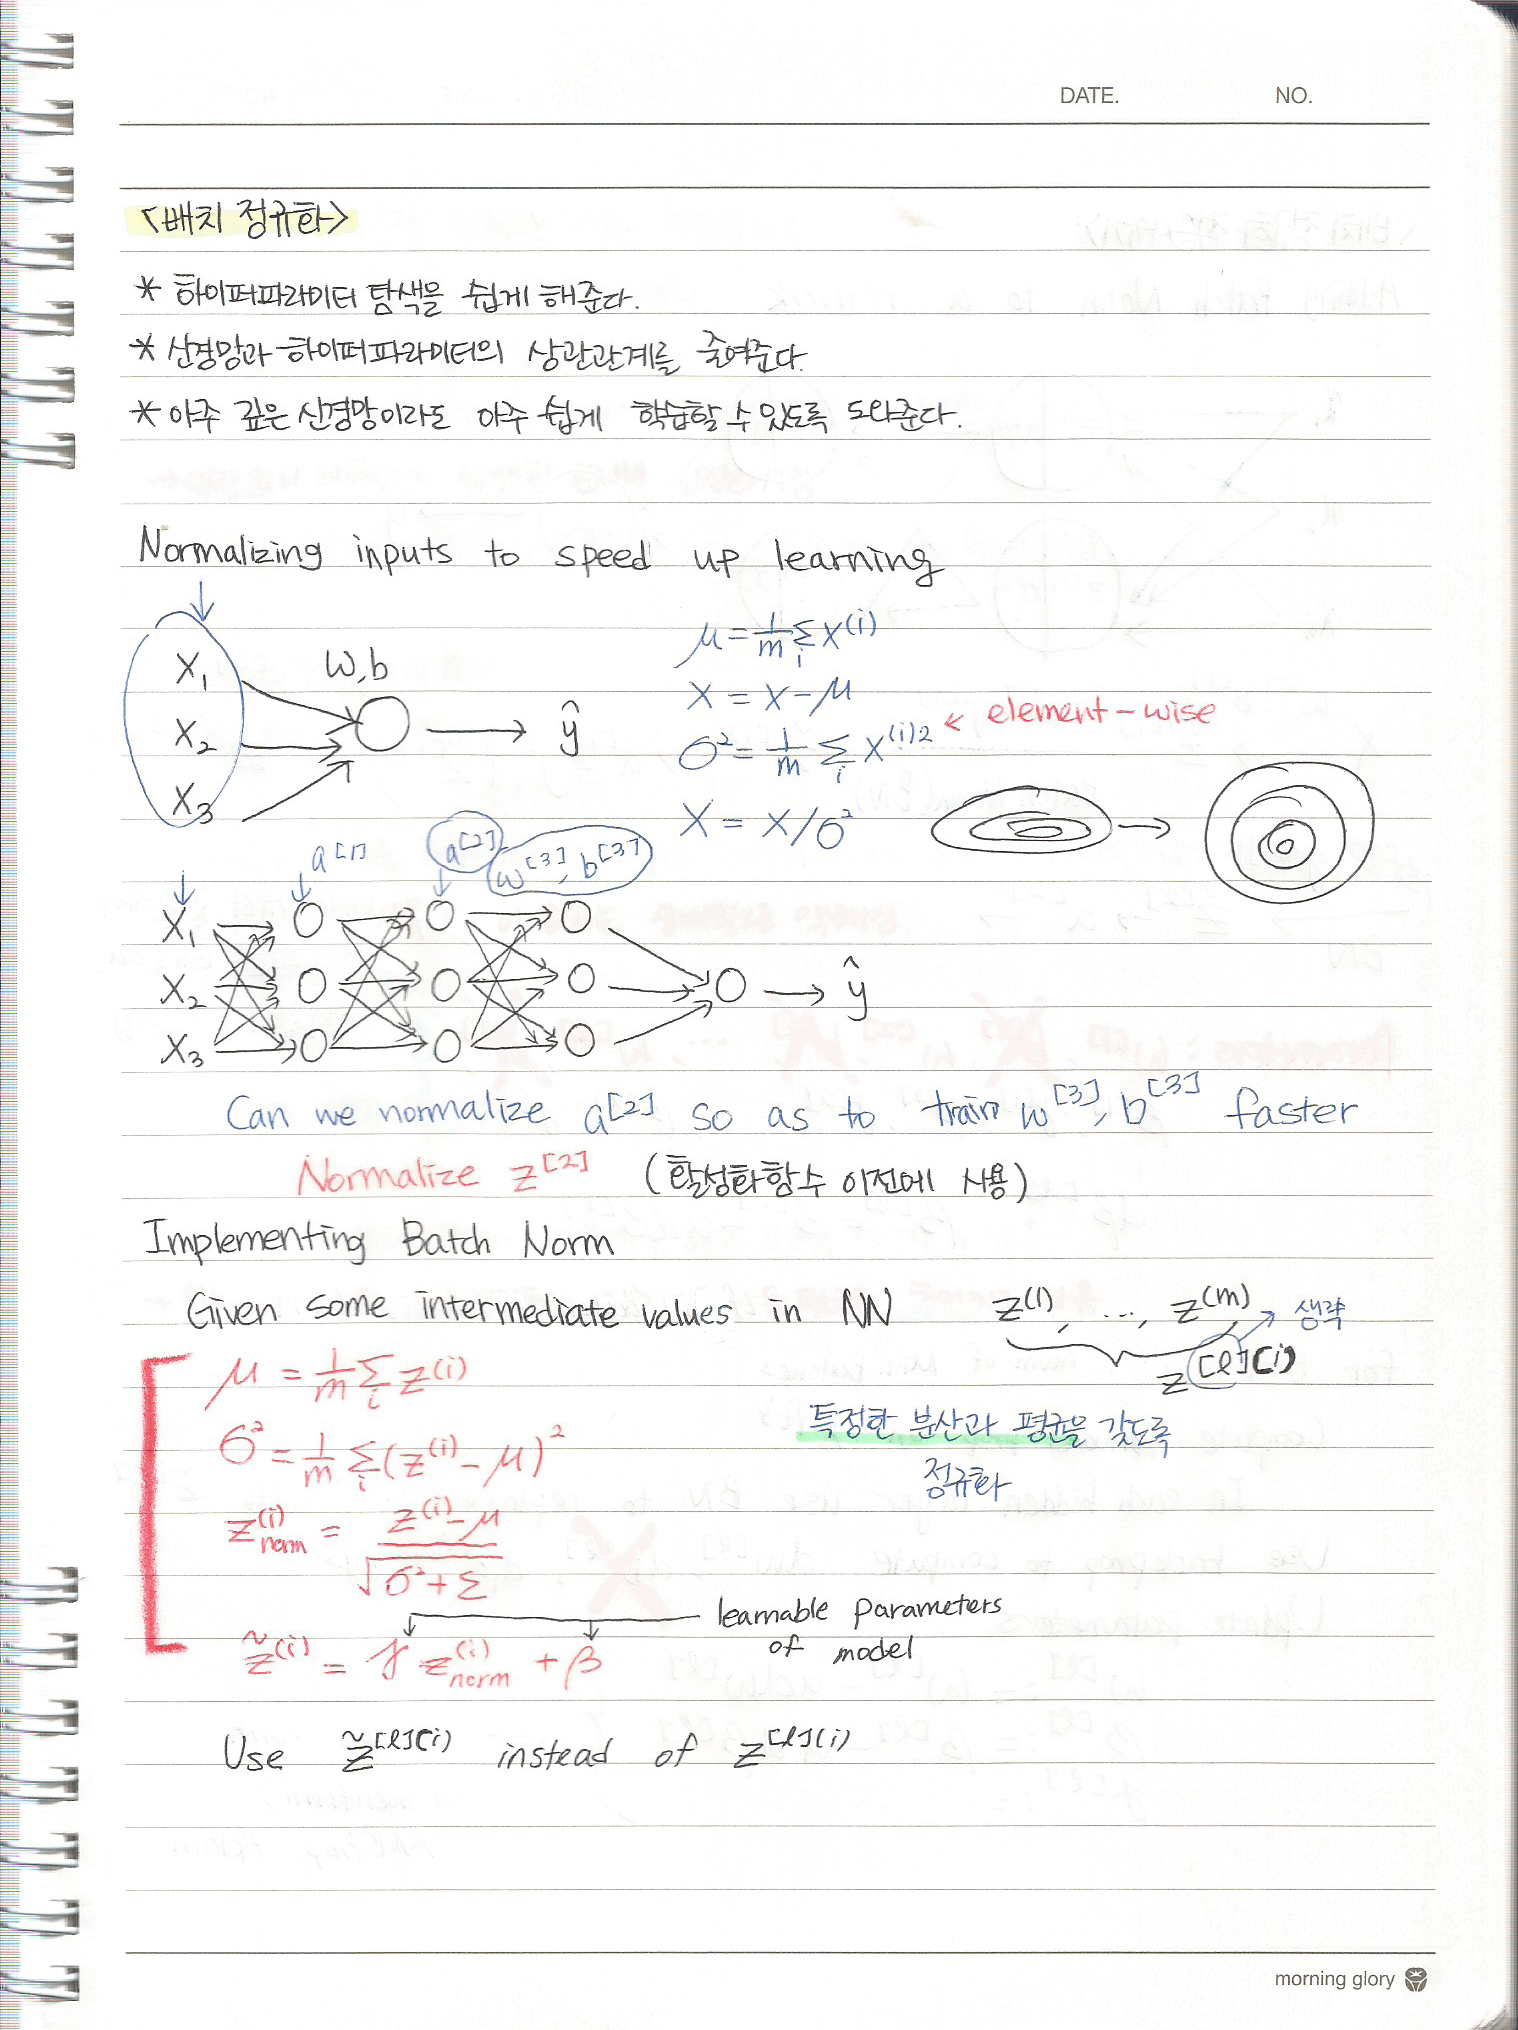 DATE. NO.
<배치 정규화>
* 하이퍼파라미터 탐색을 쉽게 해준다.
* 신경망과 하이퍼파라미터의 상관관계를 줄여준다.
* 아주 깊은 신경망이라도 아주 쉽게 학습할 수 있도록 도와준다.
Normalizing inputs to speed up learning
X₁
X₂
X₃
W, b
ŷ
μ = 1/m Σᵢ X⁽ⁱ⁾
X = X - μ
σ² = 1/m Σᵢ X⁽ⁱ⁾² ← element-wise
X = X/σ²
a[1] a[2] w[3], b[3]
X₁
X₂
X₃
ŷ
Can we normalize a[2] so as to train w[3], b[3] faster
Normalize z[2] (활성화함수 이전에 사용)
Implementing Batch Norm
Given some intermediate values in NN z⁽¹⁾, ..., z⁽ᵐ⁾ → 생략
z[l](i)
μ = 1/m Σᵢ z⁽ⁱ⁾
특정한 분산과 평균을 갖도록
정규화
σ² = 1/m Σᵢ (z⁽ⁱ⁾ - μ)²
z⁽ⁱ⁾norm = (z⁽ⁱ⁾ - μ) / √(σ² + Σ)
learnable parameters
of model
z̃⁽ⁱ⁾ = γ z⁽ⁱ⁾norm + β
Use z̃[l](i) instead of z[l](i)
morning glory